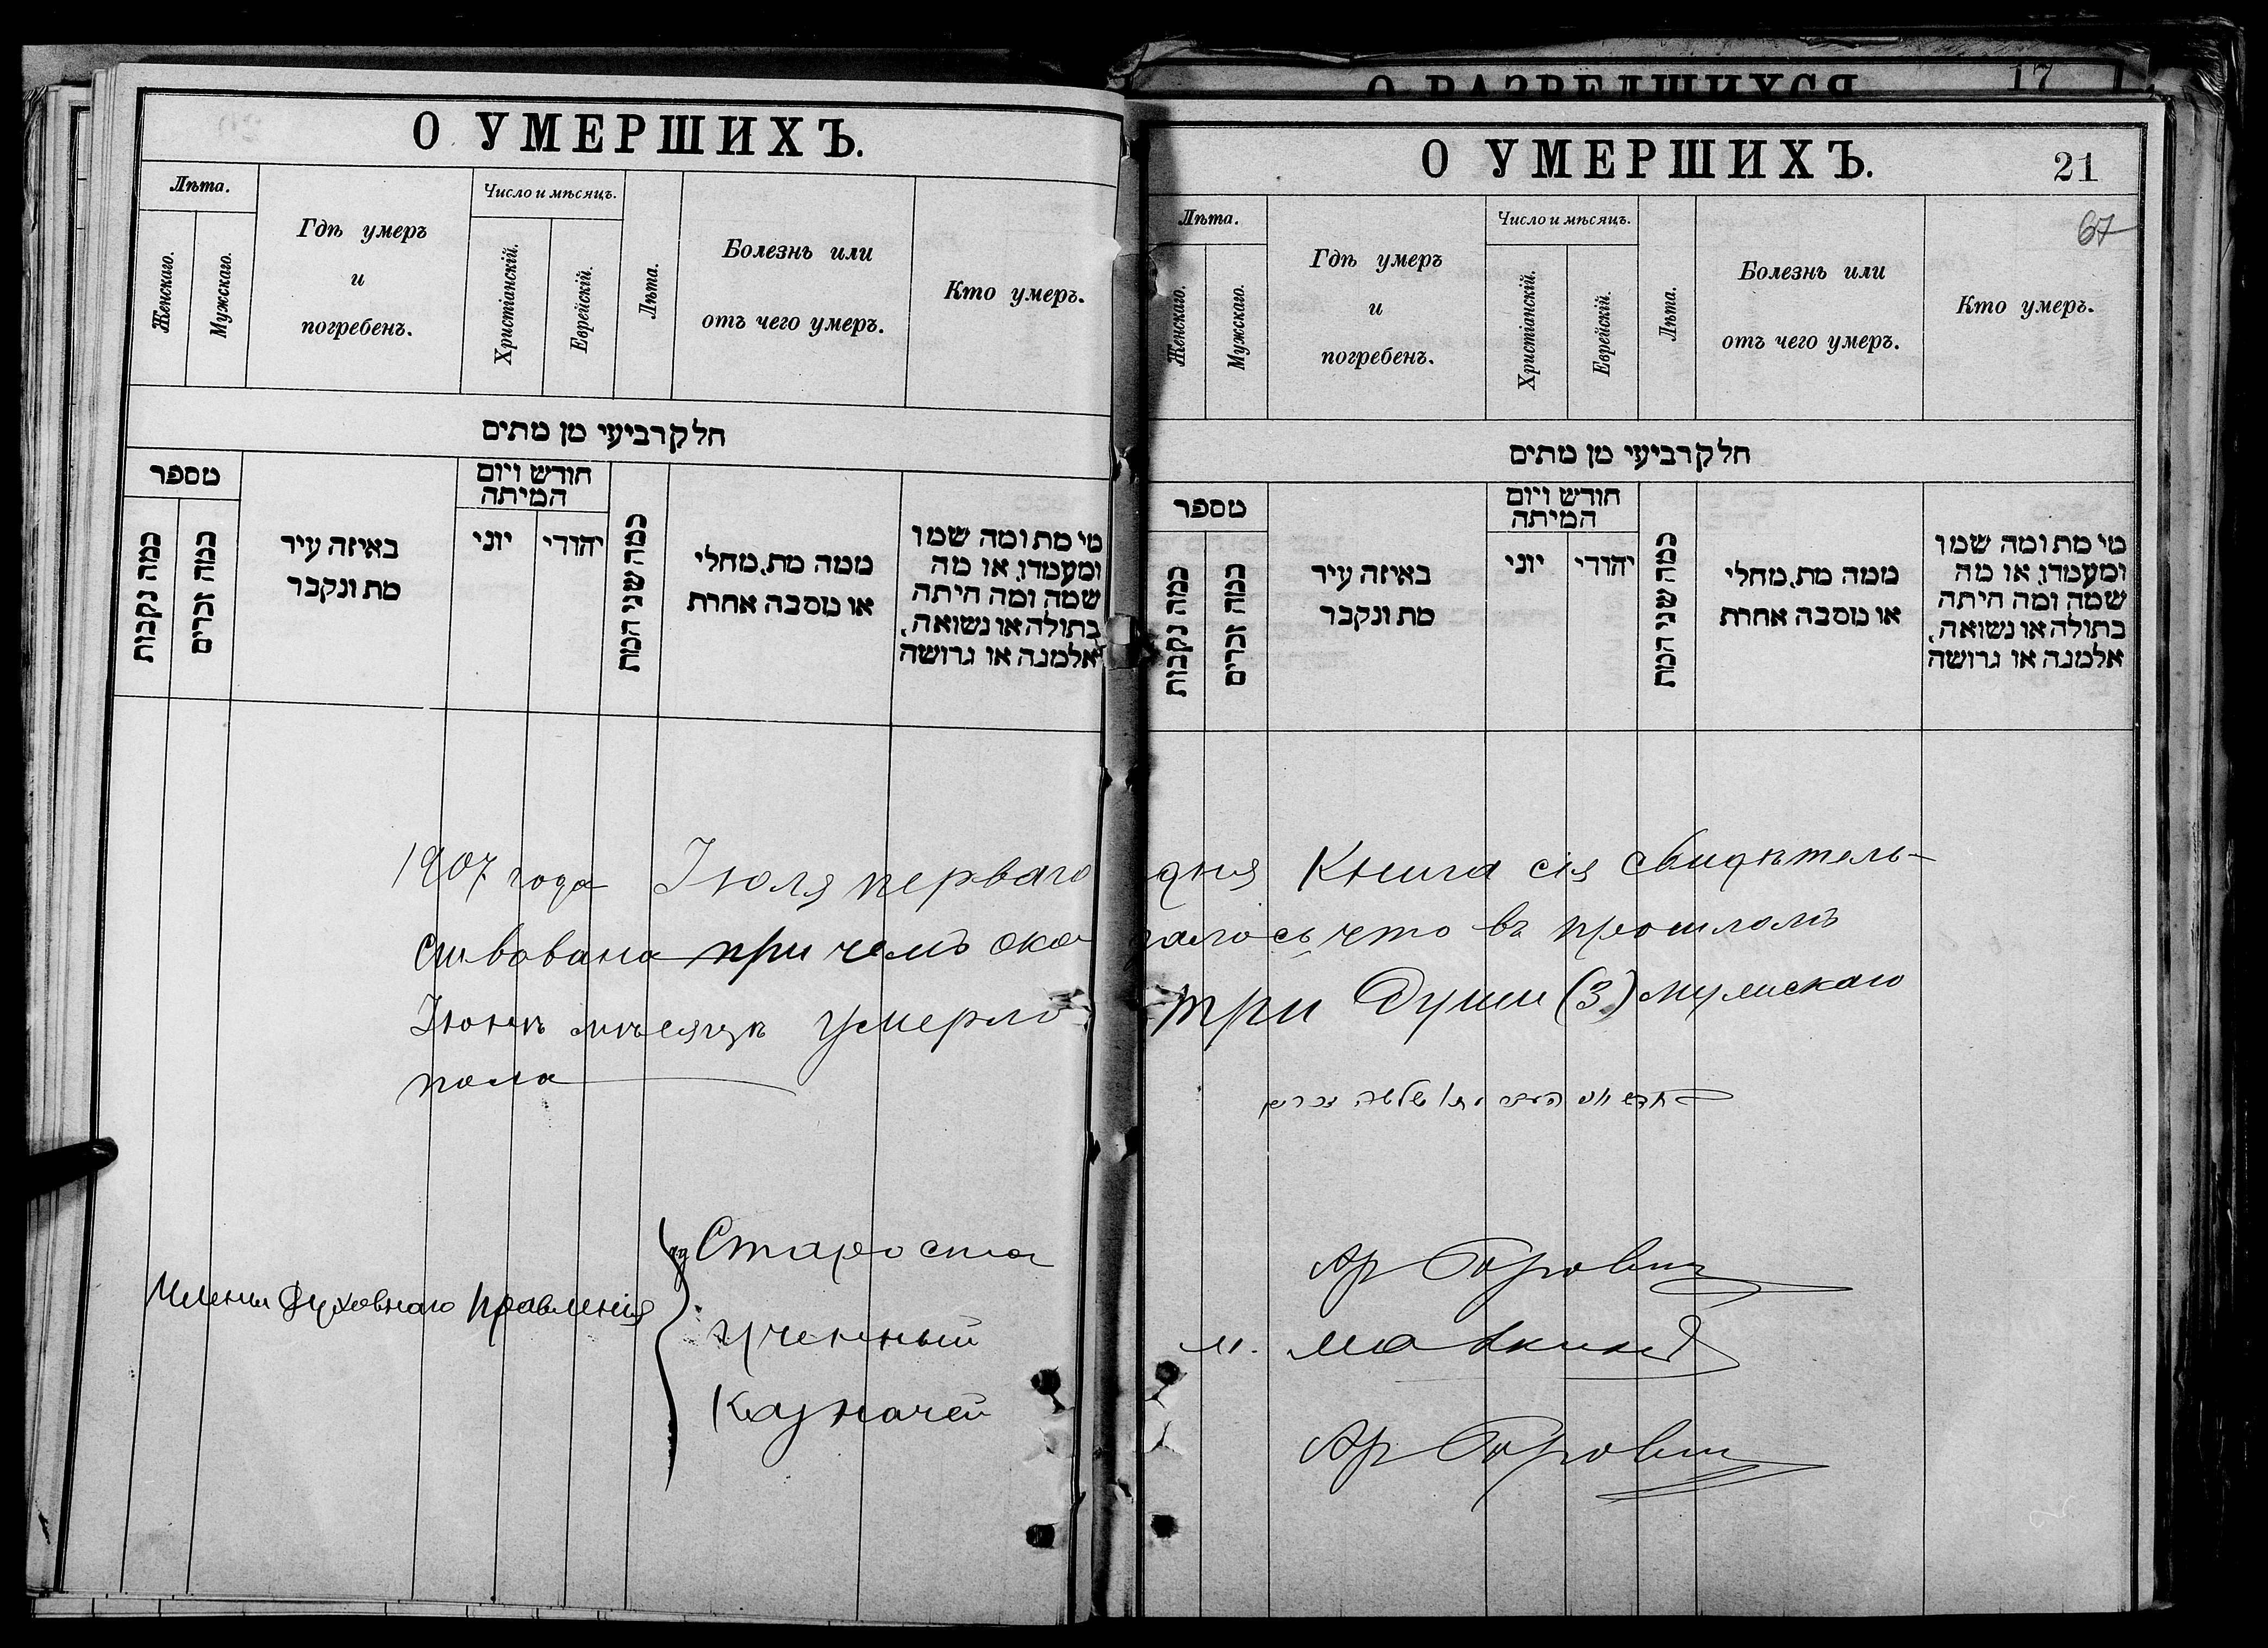 О РАЗВЕДШИХСЯ 17
О УМЕРШИХЪ.
Лѣта.
Женскаго.
Мужскаго.
Гдѣ умеръ
и
погребенъ.
Число и мѣсяцъ.
Христіанскій.
Еврейскій.
Лѣта.
Болезнь или
отъ чего умеръ.
Кто умеръ.
חלק רביעי מן מתים
מספר
כמה נקבות
כמה זכרים
באיזה עיר
מת ונקבר
חודש ויום
המיתה
יוני
יהודי
כמה שני המת
ממה מת, מחלי
או מסבה אחרת
מי מת ומה שמו
ומעמדו, או מה
שמה ומה היתה
בתולה או נשואה,
אלמנה או גרושה
О УМЕРШИХЪ.
21
67
Лѣта.
Женскаго.
Мужскаго.
Гдѣ умеръ
и
погребенъ.
Число и мѣсяцъ.
Христіанскій.
Еврейскій.
Лѣта.
Болезнь или
отъ чего умеръ.
Кто умеръ.
חלק רביעי מן מתים
מספר
כמה נקבות
כמה זכרים
באיזה עיר
מת ונקבר
חודש ויום
המיתה
יוני
יהודי
כמה שני המת
ממה מת, מחלי
או מסבה אחרת
מי מת ומה שמו
ומעמדו, או מה
שמה ומה היתה
בתולה או נשואה,
אלמנה או גרושה
1907 года Іюля перваго дня Книга сія свидѣтель-
ствована при чемъ оказалось что въ прошломъ
Іюнѣ мѣсяцѣ умерло три души (3) мужскаго
пола
שלשה זכרים
Члены Духовнаго Правленія
Староста
Ученный
Казначей